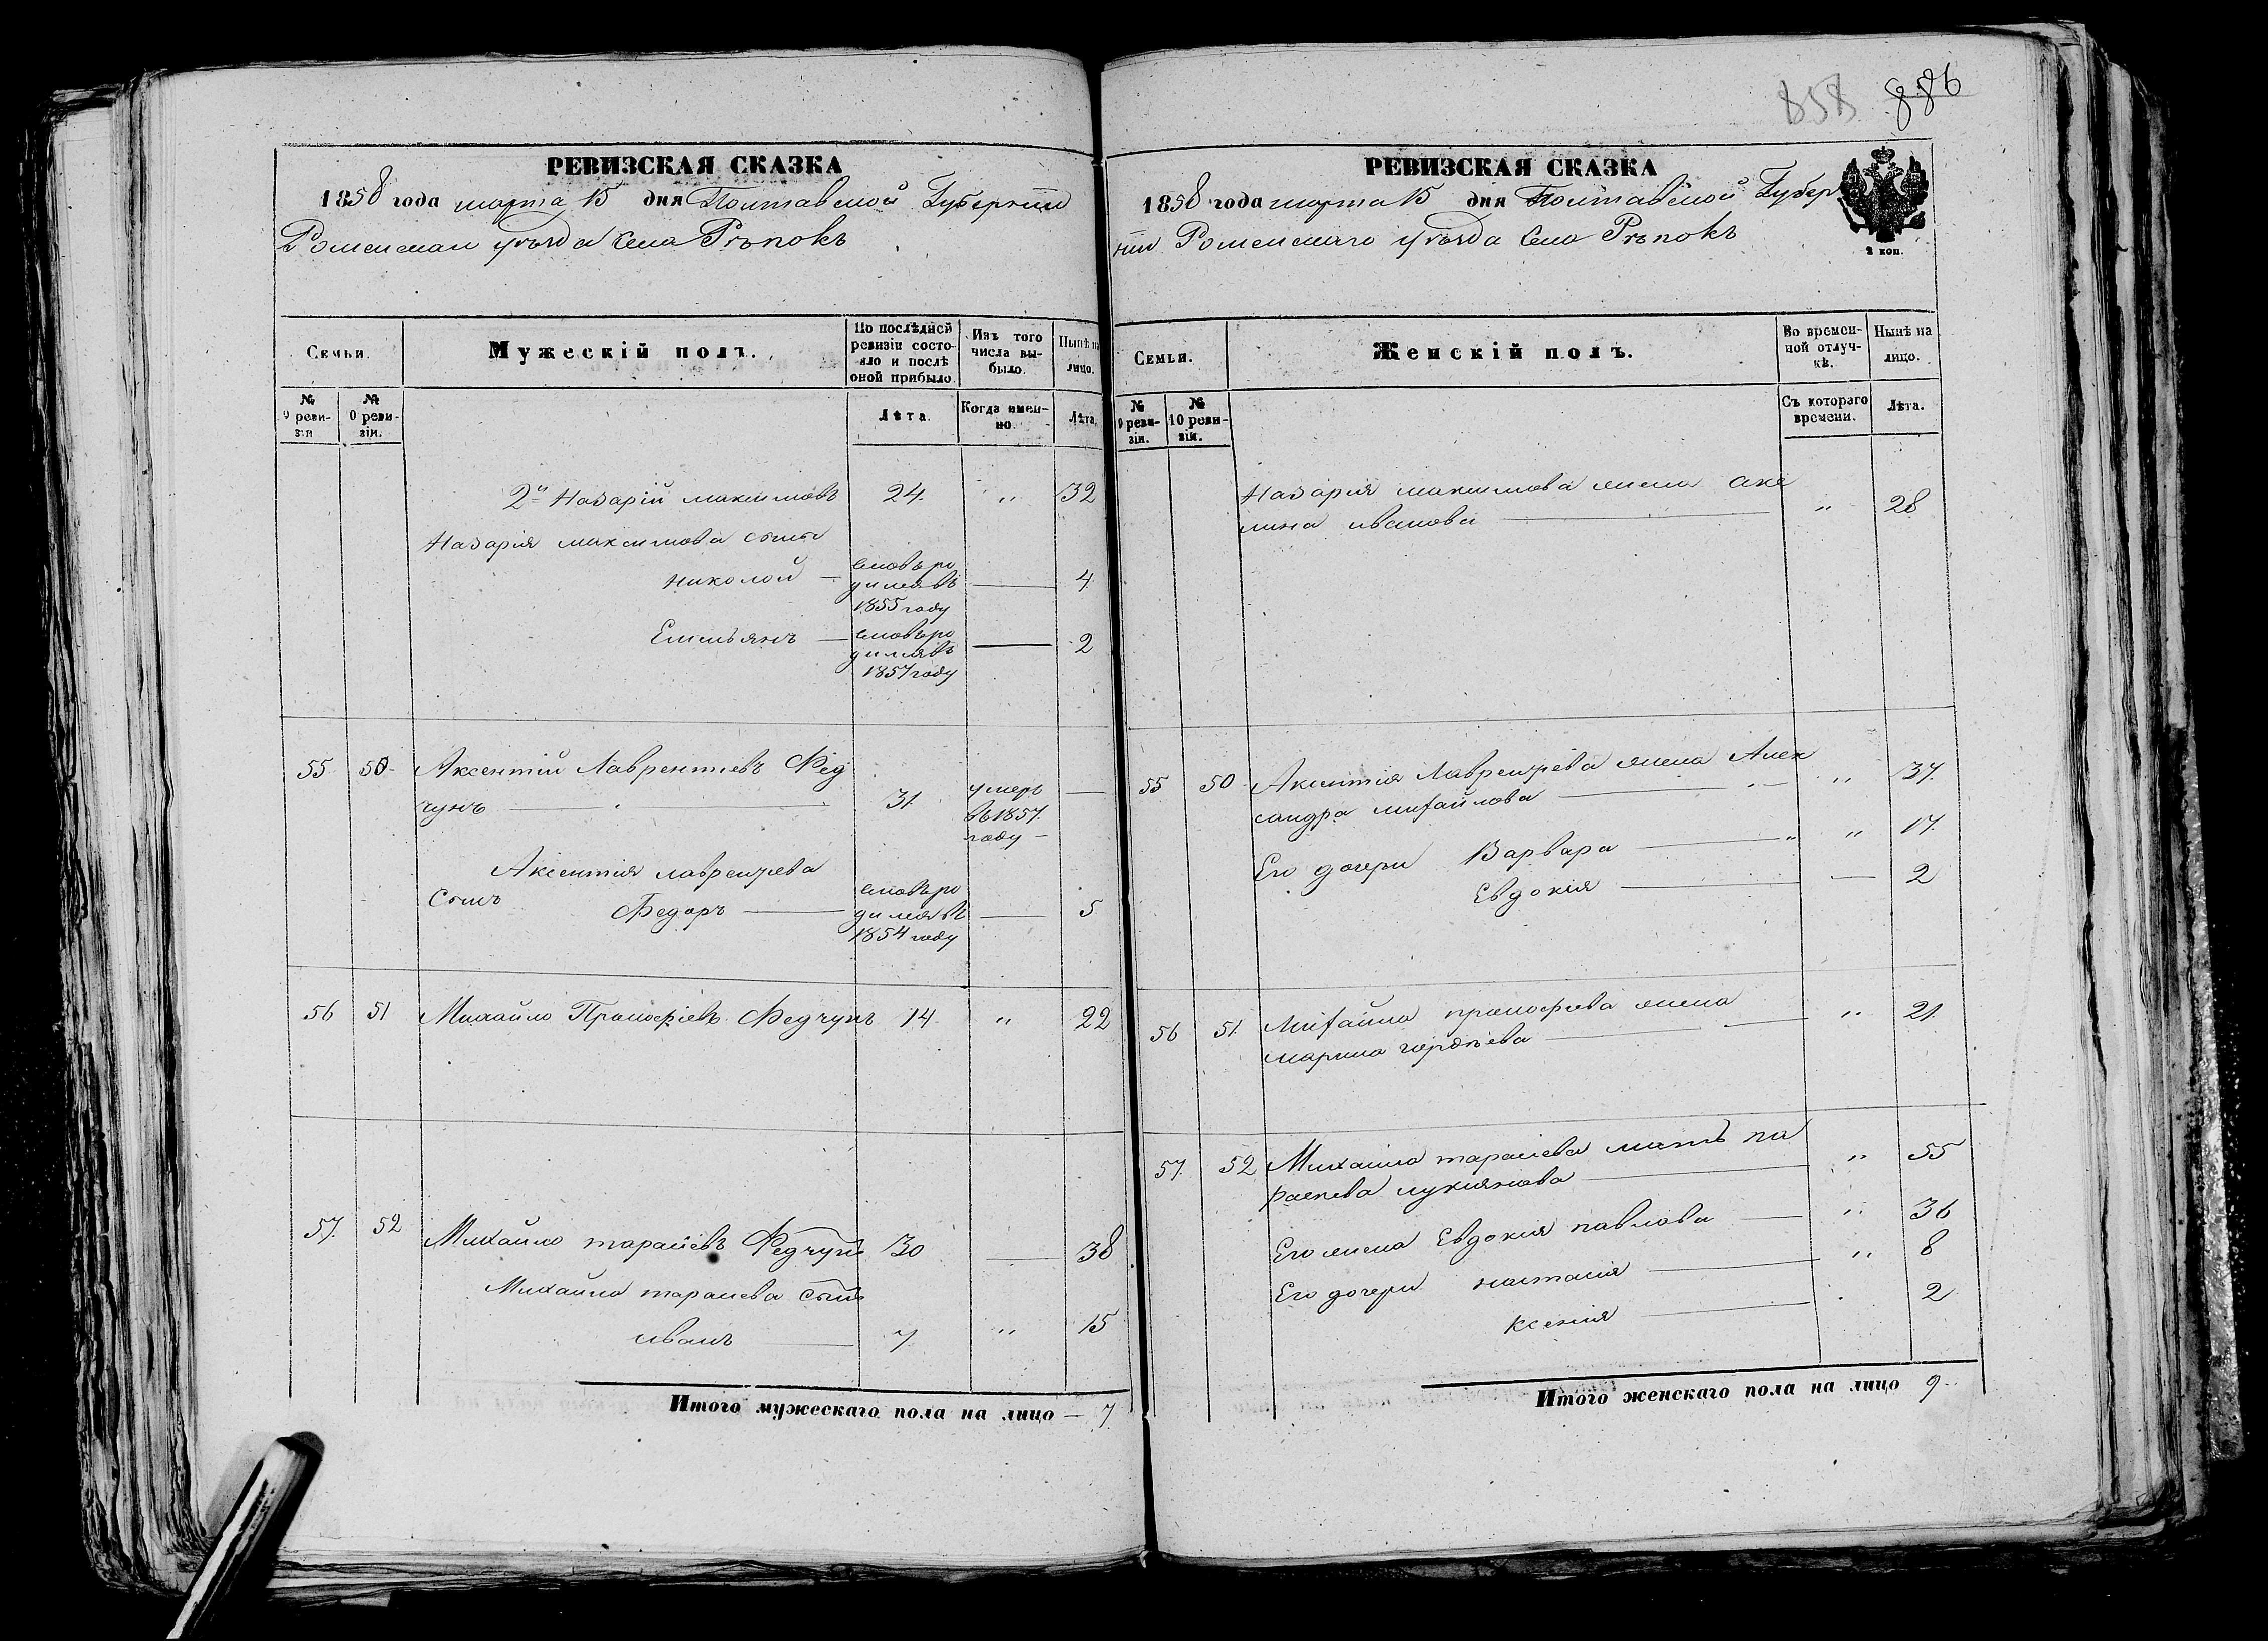 858 886
РЕВИЗСКАЯ СКАЗКА
1858 года марта 15 дня Полтавской Губернии
Роменскаи уѣзда Села Рѣпокъ
Семьи.
Мужескій полъ.
По послѣдней ревизіи состояло и послѣ оной прибыло.
Изъ того числа выбыло.
Нынѣ на лицо.
№ 9 ревизіи
№ 10 ревизіи.
Лѣта.
Когда именно.
Лѣта.
2й Назарій максимовъ 24. " 32
Назарія максимова сыны
николай — вновь родился въ 1855 году — 4
Емельянъ — вновь родился въ 1857 году — 2
55 50 Аксентій Лаврентіевъ Фед
чунъ — 31. умеръ въ 1857. году —
Аксентія лаврентьева
сынъ Федоръ — вновь родился въ 1854 году — 5
56 51 Михайло Прокофіевъ Федчунъ 14 " 22
57. 52 Михайло тарасіевъ Федчунъ 30 — 38
Михайла тарасиева сынъ
иванъ — 7 " 15
Итого мужескаго пола на лицо — 7.
РЕВИЗСКАЯ СКАЗКА
1858 года марта 15 дня Полтавской Губер
нии Роменскаго уѣзда Села Рѣпокъ
2 коп.
Семьи.
Женскій полъ.
Во временной отлучкѣ.
Нынѣ на лицо.
№ 9 ревизіи.
№ 10 ревизіи.
Съ котораго времени.
Лѣта.
Назария максимова жена аке
лина иванова — " 28
55 50 Аксентия Лаврентьева жена Алек
сандра михайлова — " 37.
Его дочери Варвара — " 17.
Евдокія — — 2
56 51. Михайла прокофиева жена
марина гордѣева — " 21.
57. 52 Михаила тарасиева мать па
раскева лукиянова — " 55
Его жена Евдокия павлова — " 36
Его дочери настасія — " 8
ксенія — 2
Итого женскаго пола на лицо 9